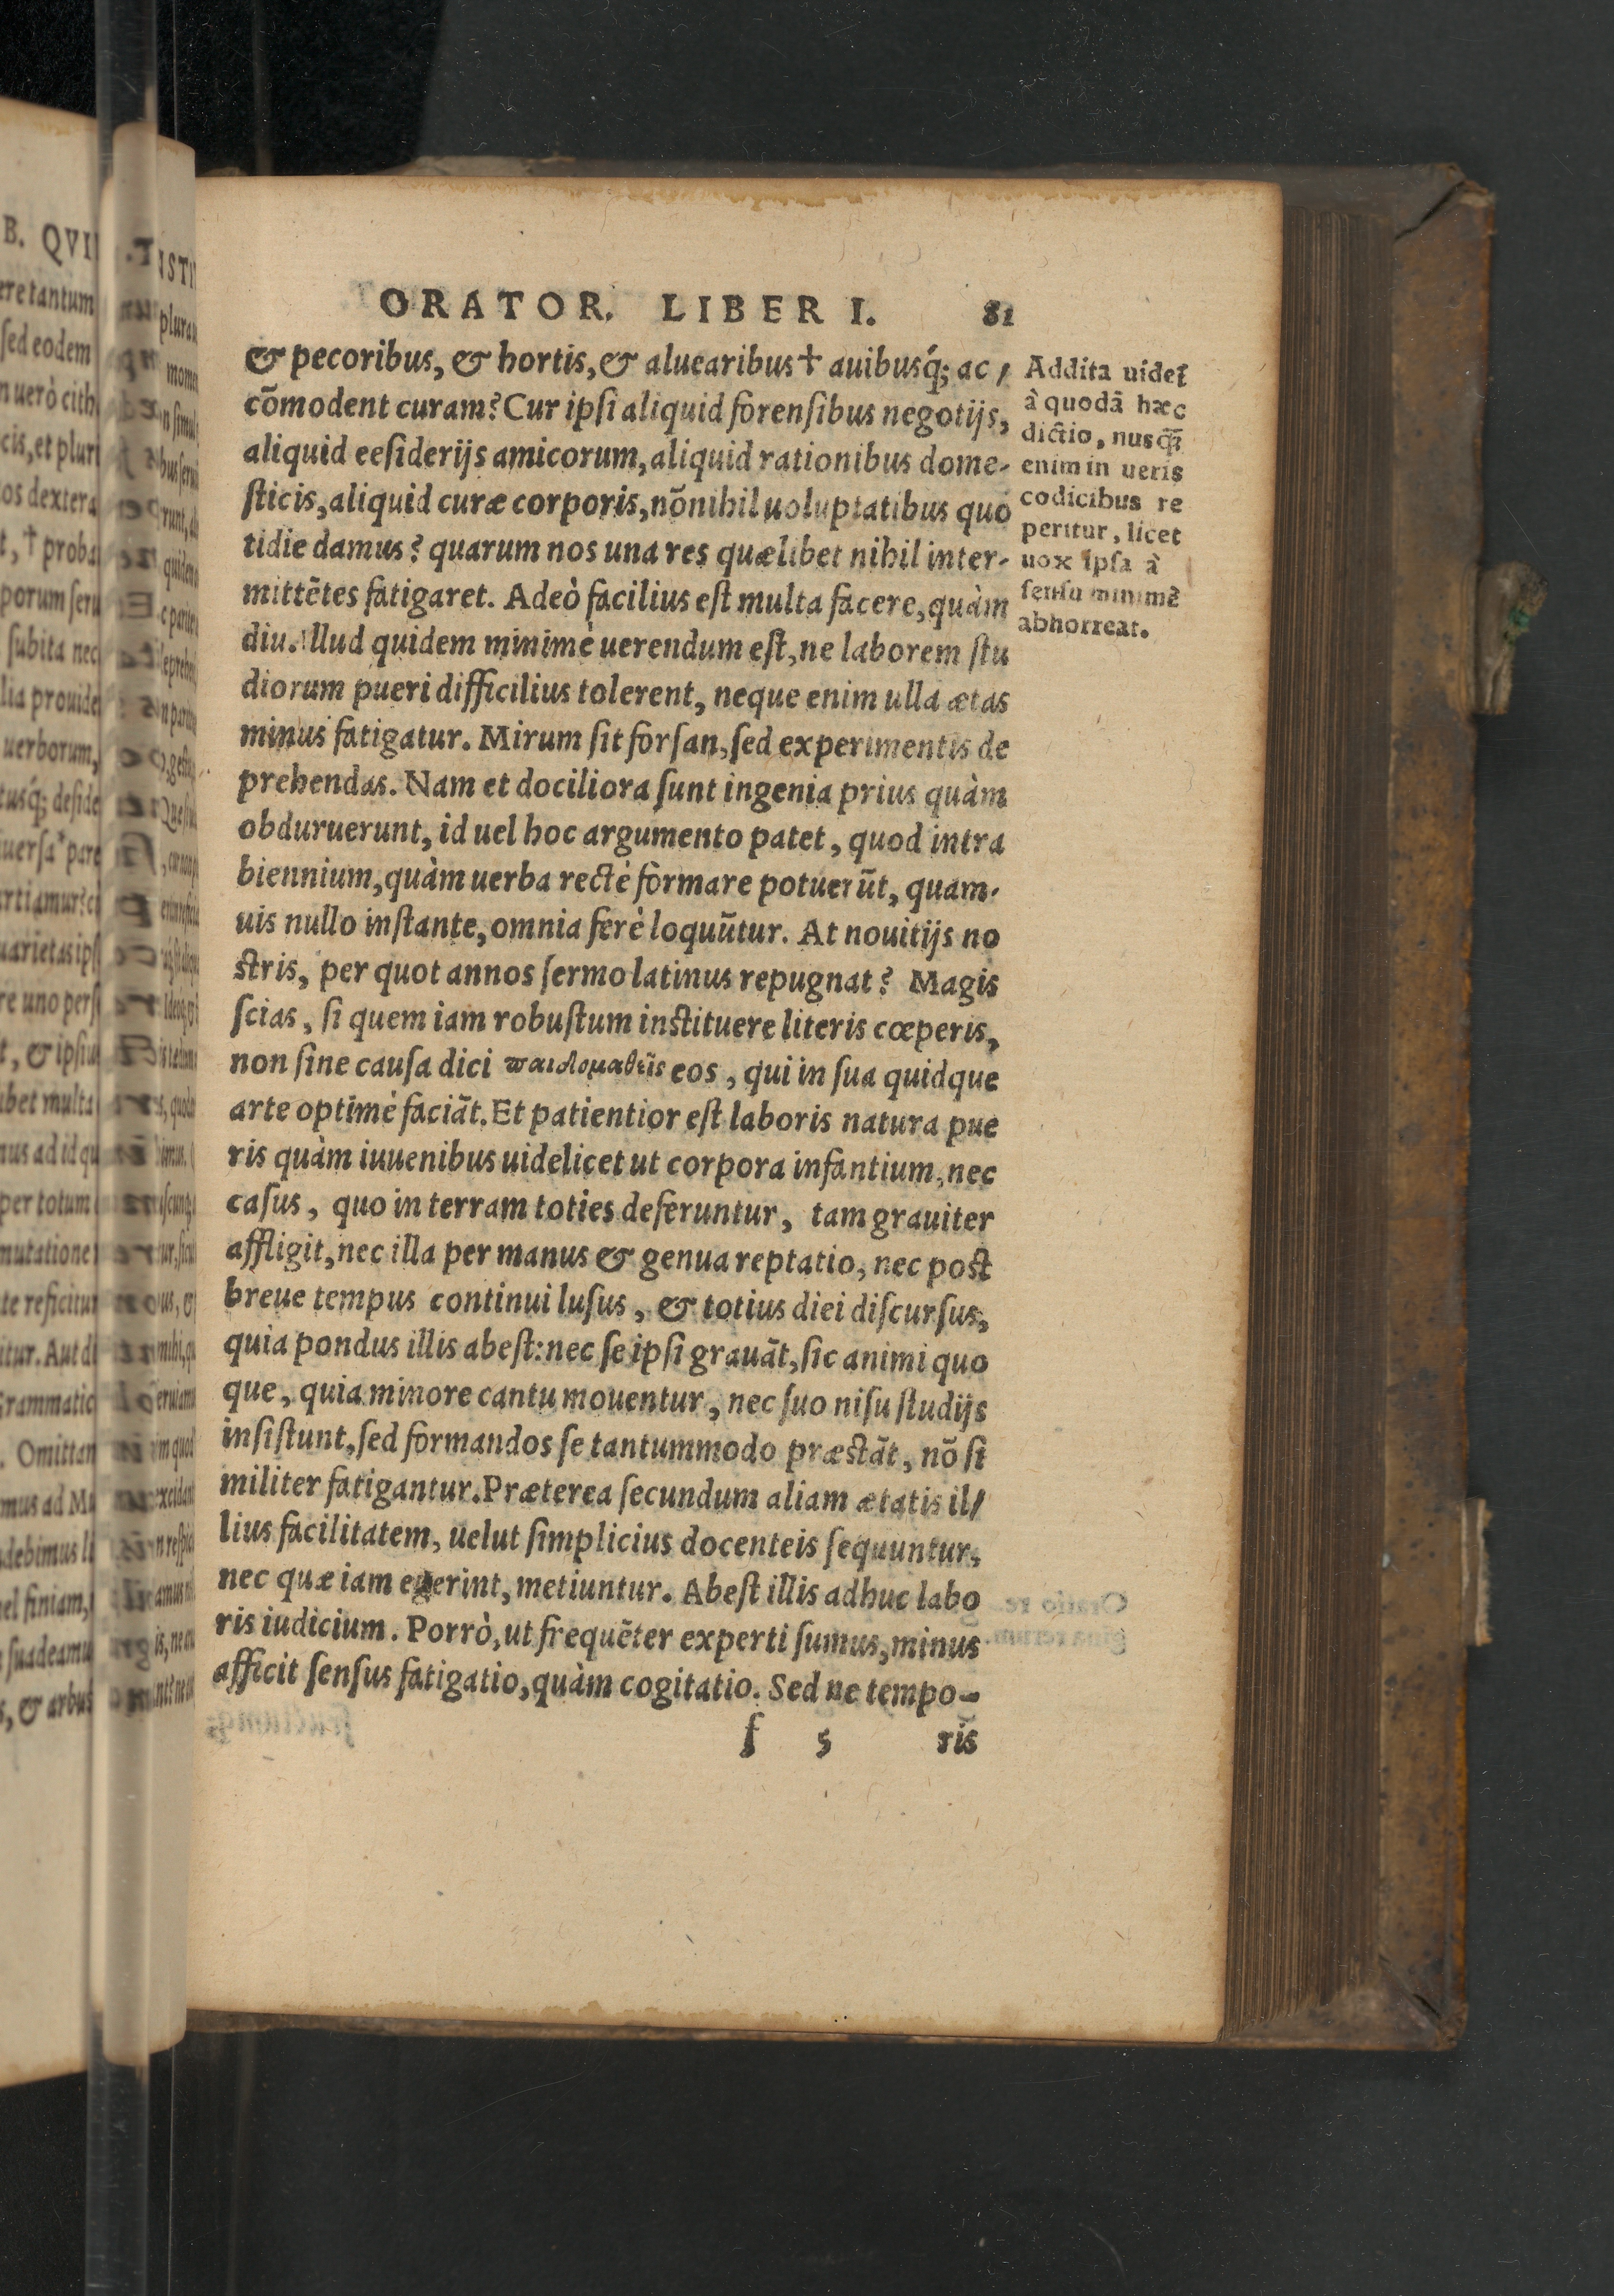 ORATOR. LIBER I. 81
& pecoribus, & hortis, & aluearibus † auibusq́; ac ⸗
cõmodent curam? Cur ipſi aliquid forenſibus negotijs,
aliquid eeſiderijs amicorum, aliquid rationibus dome-
ſticis, aliquid curæ corporis, nõnihil uoluptatibus quo
tidie damus? quarum nos una res quælibet nihil inter-
mittẽtes fatigaret. Adeò facilius eſt multa facere, quàm
diu. Illud quidem minimè uerendum eſt, ne laborem ſtu
diorum pueri difficilius tolerent, neque enim ulla ætas
minus fatigatur. Mirum ſit forſan, ſed experimentis de
prehendas. Nam et dociliora ſunt ingenia prius quàm
obduruerunt, id uel hoc argumento patet, quod intra
biennium, quàm uerba rectè formare potuerũt, quam-
uis nullo inſtante, omnia ferè loquũtur. At nouitijs no
ſtris, per quot annos ſermo latinus repugnat? Magis
ſcias, ſi quem iam robuſtum inſtituere literis cœperis,
non ſine cauſa dici παιδομαθεῖς eos, qui in ſua quidque
arte optimè faciãt. Et patientior eſt laboris natura pue
ris quàm iuuenibus uidelicet ut corpora infantium, nec
caſus, quo in terram toties deferuntur, tam grauiter
affligit, nec illa per manus & genua reptatio, nec poſt
breue tempus continui luſus, & totius diei diſcurſus,
quia pondus illis abeſt: nec ſe ipſi grauãt, ſic animi quo
que, quia minore cantu mouentur, nec ſuo niſu ſtudijs
inſiſtunt, ſed formandos ſe tantummodo præſtãt, nõ ſi
militer fatigantur. Præterea ſecundum aliam ætatis il⸗
lius facilitatem, uelut ſimplicius docenteis ſequuntur,
nec quæ iam egerint, metiuntur. Abeſt illis adhuc labo
ris iudicium. Porrò, ut frequẽter experti ſumus, minus
afficit ſenſus fatigatio, quàm cogitatio. Sed ne tempo-
f 5 ris
Addita uidet̃
à quodã hæc
dictio, nusq̃
enim in ueris
codicibus re
peritur, licet
uox ipſa à
ſenſu minimẽ
abhorreat.